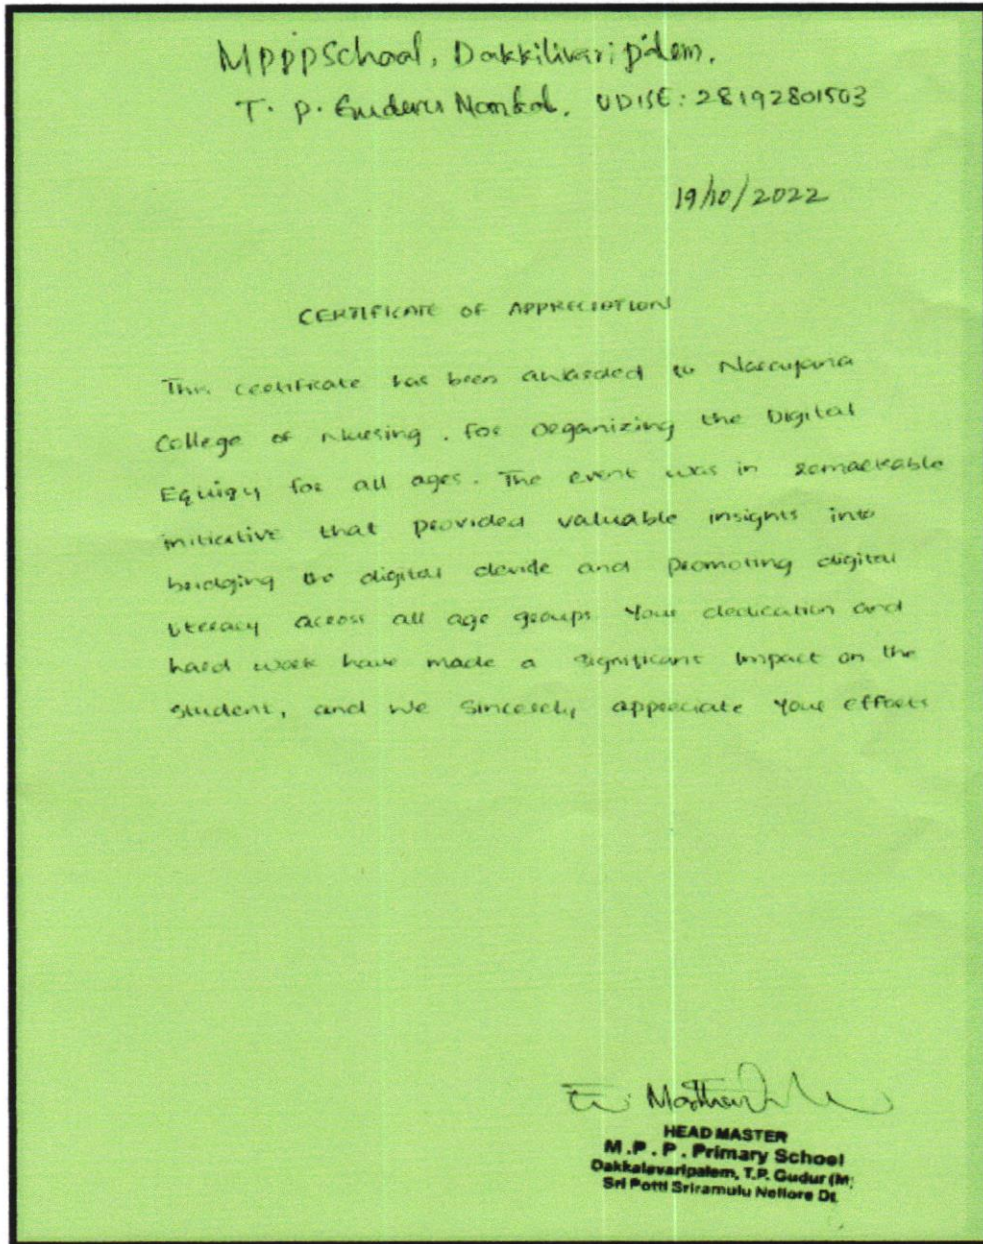 MpppSchool, Dakkilivaripalem.
T. P. Guduru Mandal. UDISE: 28192801503
19/10/2022
CERTIFICATE OF APPRECIATION
This certificate has been awarded to Narayana
College of Nursing. for organizing the Digital
Equigy for all ages. The event was in remarkable
initiative that provided valuable insights into
bridging the digital devide and promoting digital
literacy across all age groups Your dedication and
hard work have made a significant impact on the
student, and we sincerely appreciate your efforts
HEAD MASTER
M.P.P. Primary School
Dakkalavaripalem, T.P. Gudur (M)
Sri Potti Sriramulu Nellore Dt.